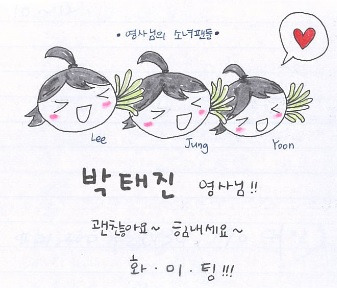 • 영사님의 소녀팬들 •
Lee Jung Yoon
박태진 영사님!!
괜찮아요~ 힘내세요~
화·이·팅!!!